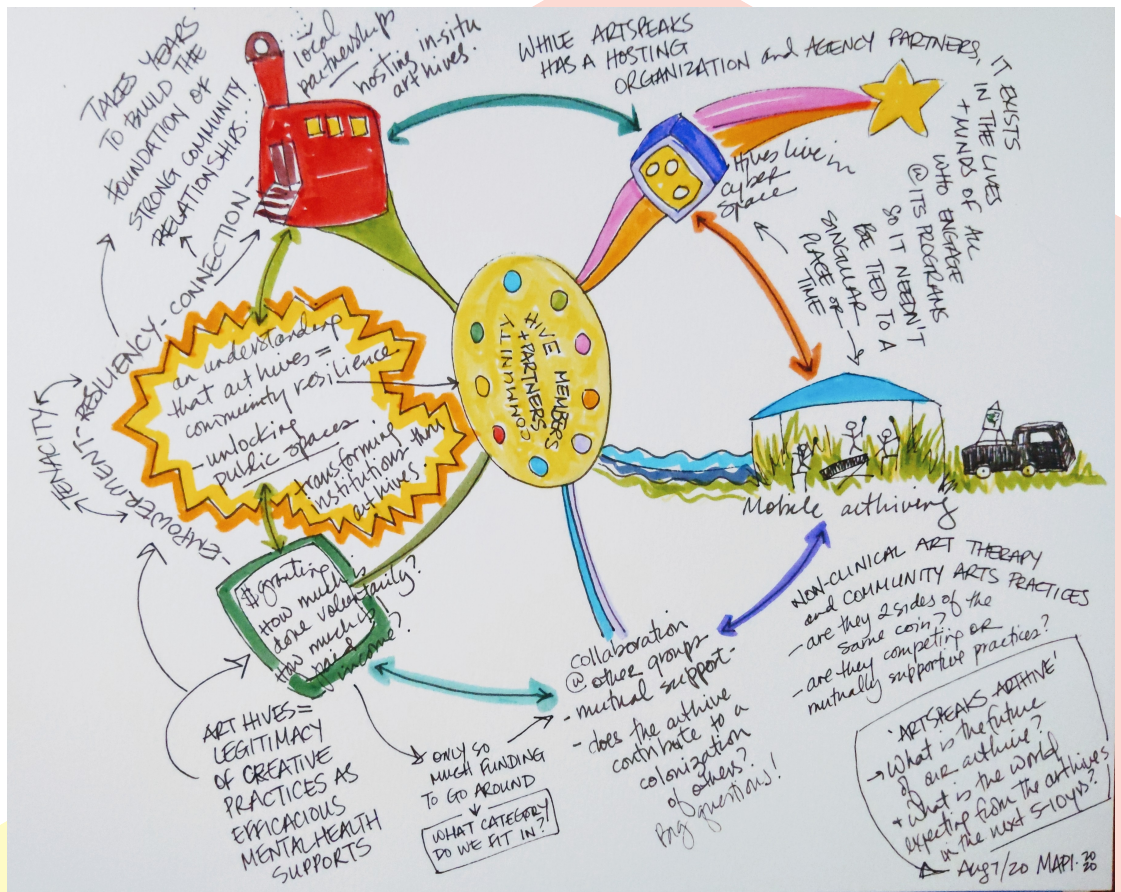 TAKES YEARS
TO BUILD THE
FOUNDATION OF
STRONG COMMUNITY
RELATIONSHIPS!
local
partnerships
hosting in-situ
art hives.
WHILE ARTSPEAKS
HAS A HOSTING
ORGANIZATION and AGENCY PARTNERS, IT
EXISTS
IN THE LIVES
+ MINDS OF ALL
WHO ENGAGE
@ ITS PROGRAMS
SO IT NEEDN'T
BE TIED TO A
SINGULAR
PLACE OR
TIME
Hives live in
cyber
space
TENACITY
-EMPOWERMENT-RESILIENCY-CONNECTION-
an understanding
that arthives =
community resilience
- unlocking
public spaces
transforming
institutions thru
arthives.
HIVE MEMBERS
+ PARTNERS
COMMUNITY
Mobile arthiving
$ granting
How much is
done voluntarily?
How much is
paid
income?
ART HIVES =
LEGITIMACY
OF CREATIVE
PRACTICES AS
EFFICACIOUS
MENTAL HEALTH
SUPPORTS
ONLY SO
MUCH FUNDING
TO GO AROUND
WHAT CATEGORY
DO WE FIT IN?
collaboration
@ other groups
- mutual support -
- does the arthive
contribute to a
colonization
of others?
Big questions!
NON-CLINICAL ART THERAPY
and COMMUNITY ARTS PRACTICES
- are they 2 sides of the
same coin?
- are they competing OR
mutually supportive practices?
'ARTSPEAKS ARTHIVE'
What is the future
of our arthive?
+ What is the world
expecting from the arthives
in the next 5-10 yrs?
Aug 7/20 MAPI. 20
20